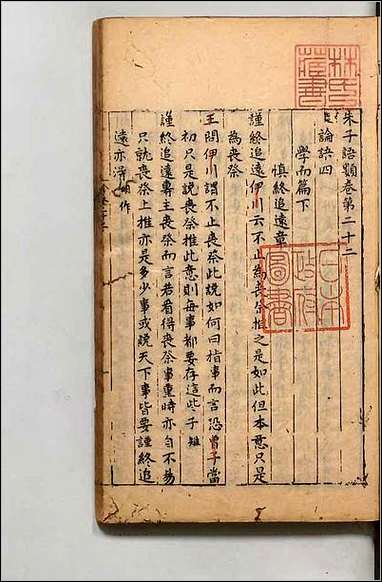 朱子語類卷第二十二
論語四
學而篇下
慎終追遠章
謹終追遠伊川云不止為喪祭推之是如此但本意只是
為喪祭
王問伊川謂不止喪祭此說如何曰指事而言恐曾子當
初只是說喪祭推此意則每事都要存這些子雉
謹終追遠專主喪祭而言若看得喪祭事重時亦自不易
只就喪祭上推亦是多少事或說天下事皆要謹終追
遠亦得
林氏藏書
日本政府圖書